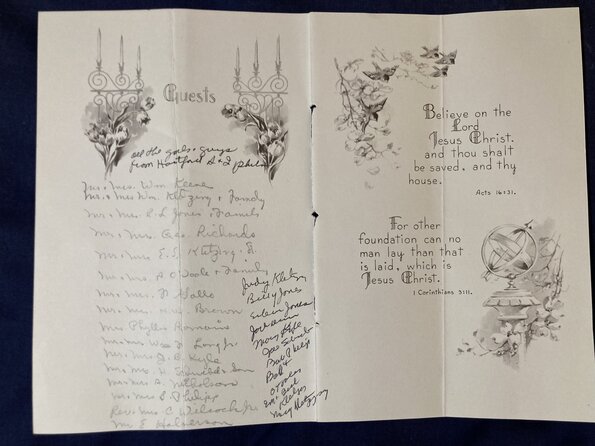 Guests
all the gals & guys
from Hartford A & I Phila
Mr & Mrs. Wm Keene
Mr & Mrs Wm. Kletzing & Family
Mr & Mrs. E. L. Jones & Family
Mr & Mrs. Geo. Richards
Mr & Mrs E. L. Kletzing, Sr.
Mr & Mrs. P. O'Toole & Family
Mr & Mrs. Gallo
Mr & Mrs. Brown
Mrs Phyllis Romanis
Mr & Mrs Wm F. Long Jr.
Mr & Mrs J. B. Kyle
Mr & Mrs. H. & Son
Mr & Mrs A. Nicholson
Mr & Mrs S. Philips
Rev & Mrs C Wilcock, Jr.
Mr. E. Halverson
Judy Kletzing
Billy Jones
Eileen Jones
Mary
Joe
Bob
Bob &
Mr &
Mary Kletzing
Believe on the
Lord
Jesus Christ.
and thou shalt
be saved, and thy
house.
Acts 16:31.
For other
foundation can no
man lay than that
is laid, which is
Jesus Christ.
1 Corinthians 3:11.